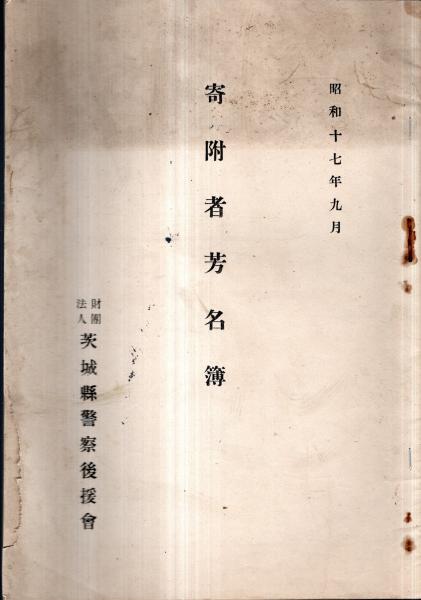 昭和十七年九月
寄附者芳名簿
財團法人 茨城縣警察後援會